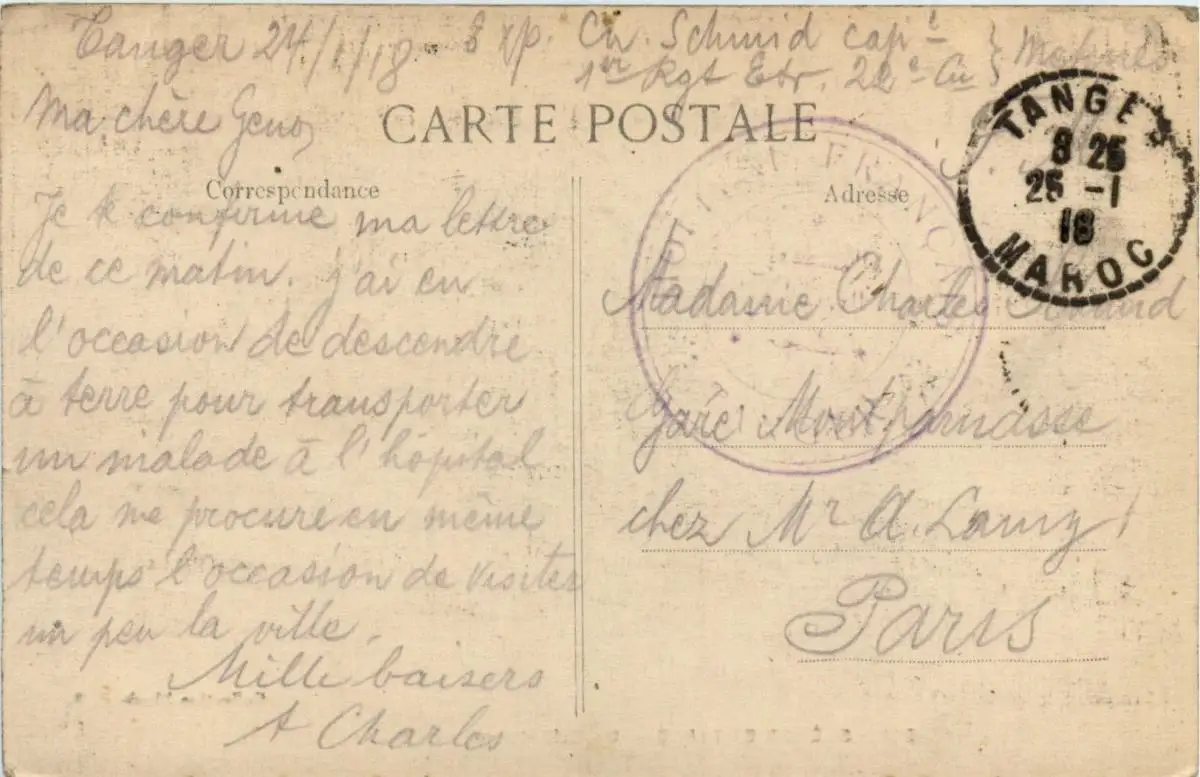 Tanger 24/1/18 - Exp. Ch. Schmid cap
1er Rgt Etr. 22e Cie
Ma chère Geno
CARTE POSTALE
Correspondance
Je te confirme ma lettre
de ce matin. j'ai eu
l'occasion de descendre
à terre pour transporter
un malade à l'hôpital
cela me procure en même
temps l'occasion de visiter
un peu la ville.
Mille baisers
Charles
Adresse
Madame Charles Schmid
Gare Montparnasse
chez Mr A.
Paris
TANGER
8 25
25 -1
18
MAROC